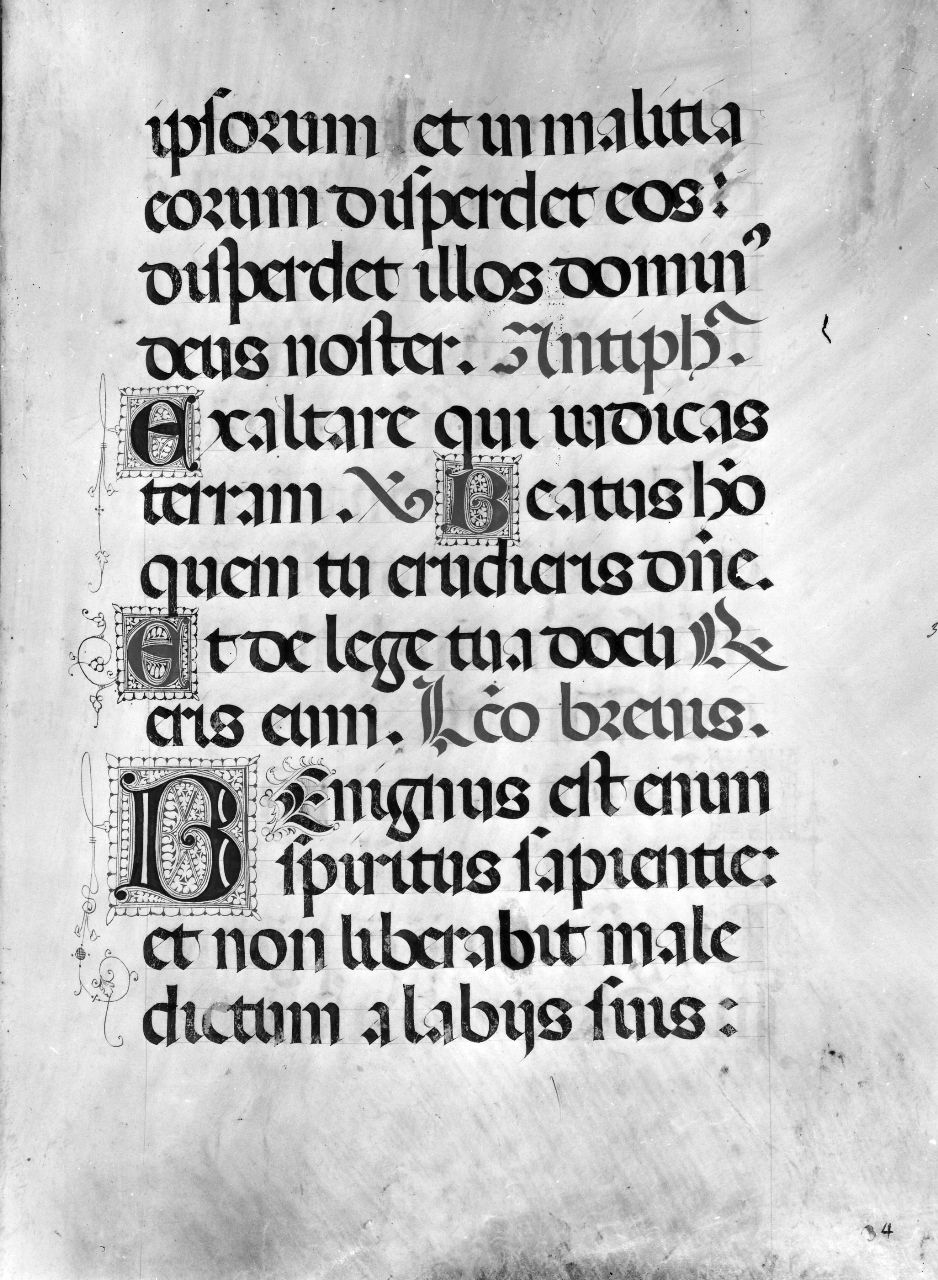 ipſorum et in malitia
eorum diſperdet eos:
diſperdet illos dominꝰ
deus noſter. Antiphᵃ.
Exaltare qui iudicas
terram. ℣ Beatus hō
quem tu erudieris dn̄e.
Et de lege tua docu ℟
eris eum. Lc̄o breuis.
BEnignus eſt enim
ſpiritus ſapientie:
et non liberabit male
dictum a labijs ſuis:
4